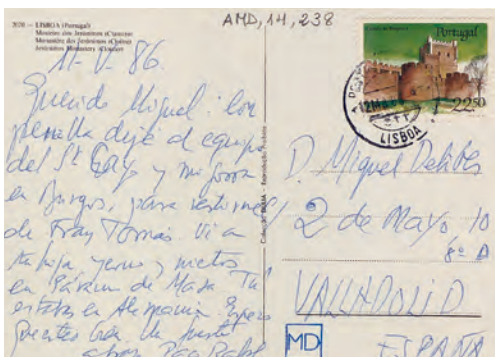 AMD,14,238
2020 — LISBOA (Portugal)
Mosteiro dos Jerónimos (Claustro)
Monastère des Jerónimos (Cloître)
Jerónimos Monastery (Cloister)
11-V-86.
Querido Miguel: Con
pena dejé el equipo
del St y mi
en Burgos, para vestirme
de Fray Tomás. Vi a
tu hija, yerno y nietos
en Páramo de Masa. Tú
estabas en Alemania. Espero
abrazo Paco Rabal
Portugal
22,50
CTT
LISBOA
D. Miguel Delibes
2 de Mayo 10
8º D
VALLADOLID
ESPAÑA
MD